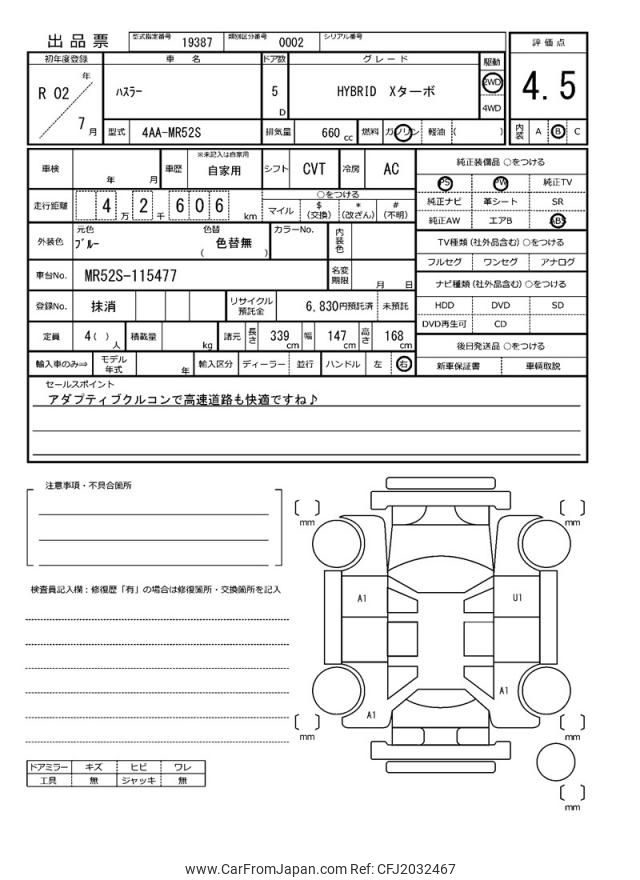 出品票 型式指定番号 19387 類別区分番号 0002 シリアル番号
評価点
4.5
内装 A B C
初年度登録 車名 ドア数 グレード 駆動
R 02 年 7 月
ハスラー 5 D HYBRID Xターボ 2WD 4WD
型式 4AA-MR52S 排気量 660 cc 燃料 ガソリン 軽油 ( )
車検 年 月 車歴 ※未記入は自家用 自家用 シフト CVT 冷房 AC
走行距離 4 万 2 千 6 0 6 km ○をつける
マイル $(交換) *(改ざん) #(不明)
外装色 元色 ブルー 色替 色替無 ( ) カラーNo. 内装色
車台No. MR52S-115477 名変期限 月 日
登録No. 抹消 リサイクル預託金 6,830円預託済 未預託
定員 4( ) 人 積載量 kg 諸元 長さ 339 cm 幅 147 cm 高さ 168 cm
輸入車のみ⇒ モデル年式 年 輸入区分 ディーラー 並行 ハンドル 左 右
純正装備品 ○をつける
PS PW 純正TV
純正ナビ 革シート SR
純正AW エアB ABS
TV種類 (社外品含む) ○をつける
フルセグ ワンセグ アナログ
ナビ種類 (社外品含む) ○をつける
HDD DVD SD
DVD再生可 CD
後日発送品 ○をつける
新車保証書 車輌取説
セールスポイント
アダプティブクルコンで高速道路も快適ですね♪
注意事項・不具合箇所
検査員記入欄：修復歴「有」の場合は修復箇所・交換箇所を記入
ドアミラー キズ ヒビ ワレ
工具 無 ジャッキ 無
[ ] mm
[ ] mm
A1
U1
A1
A1
[ ] mm
[ ] mm
[ ] mm
www.CarFromJapan.com Ref: CFJ2032467